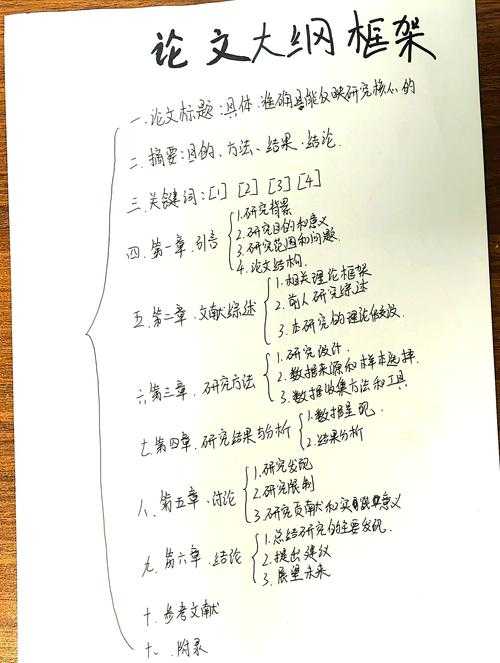 论文大纲框架
一.论文标题:具体.准确且能反映研究核心的
二.摘要:目的、方法、结果、结论.
三.关键词:[1] [2] [3] [4]
四.第一章.引言
1.研究背景
2.研究目的和意义
3.研究范围和问题.
4.论文结构.
五.第二章.文献综述
1.相关理论框架
2.前人研究综述
3.本研究的理论
六.第三章.研究方法
1.研究设计.
2.数据来源和样本选择.
3.数据收集方法和工具
七.第四章.研究结果与分析
1.数据呈现.
2.结果分析
八.第五章.讨论
1.研究发现
2.研究限制
3.研究贡献和实践意义
九.第六章.结论
1.总结研究的主要发现.
2.提出建议
3.展望未来
十.参考文献
十一.附录